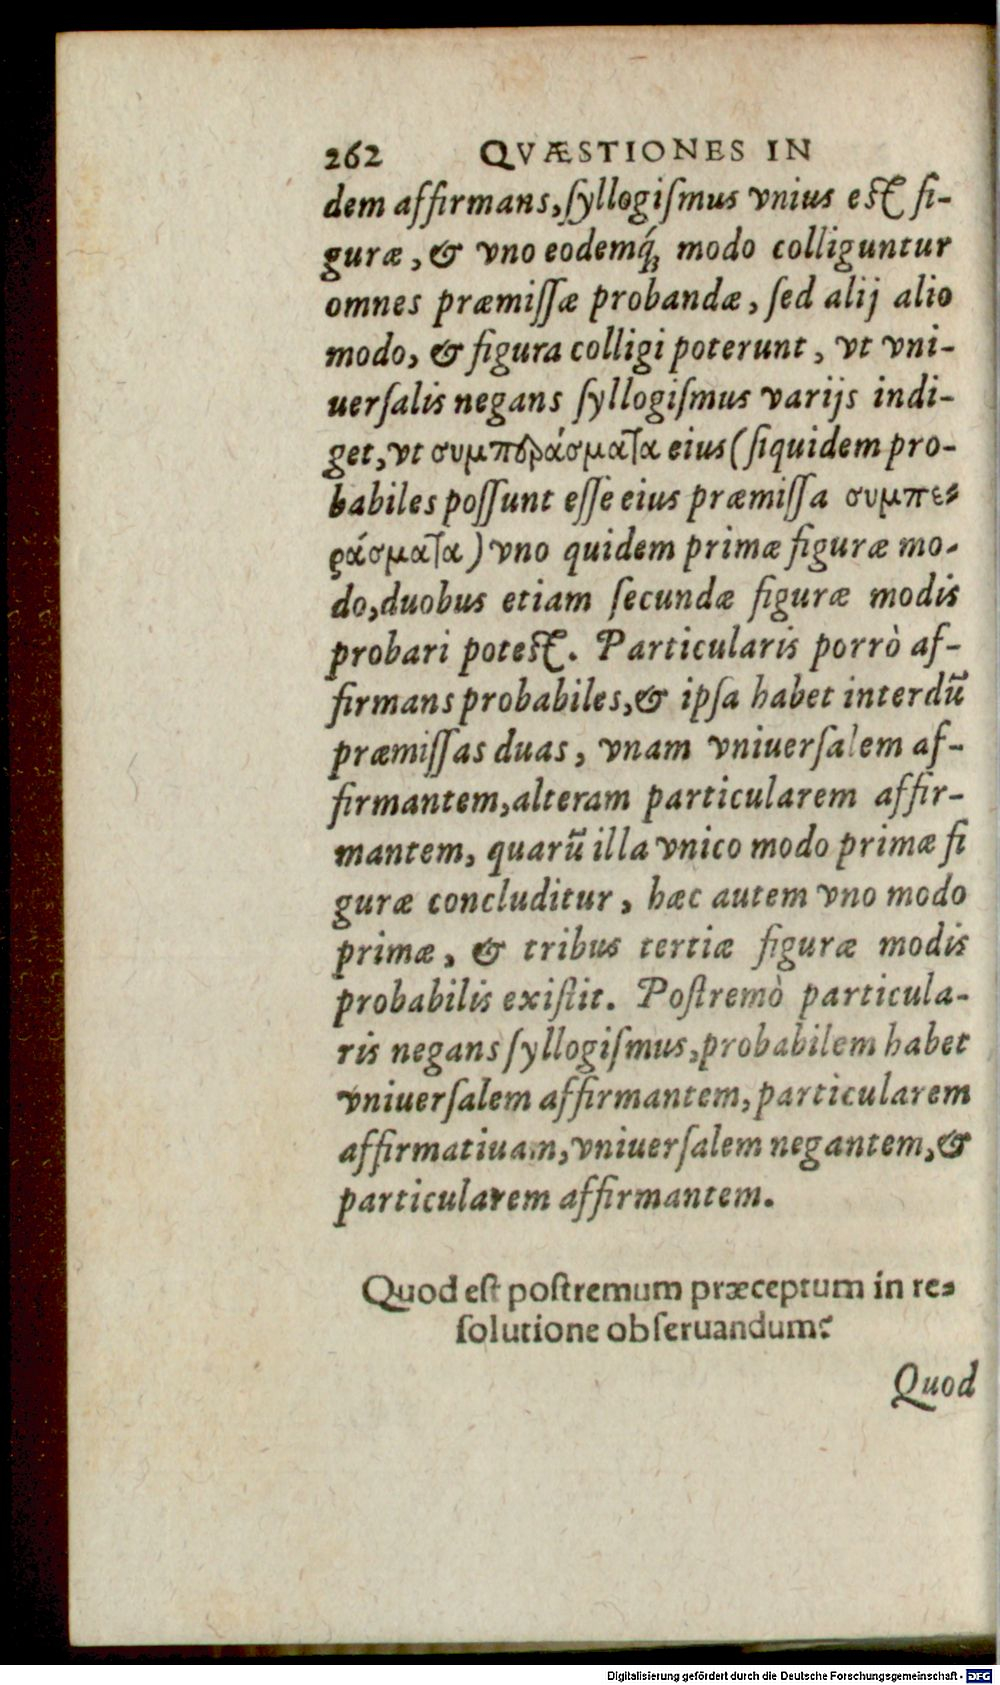 262 QVÆSTIONES IN
dem affirmans, ſyllogiſmus vnius eſt fi-
guræ, & vno eodemq́; modo colliguntur
omnes præmiſſæ probandæ, ſed alij alio
modo, & figura colligi poterunt, vt vni-
uerſalis negans ſyllogiſmus varijs indi-
get, vt συμπεράσματα eius (ſiquidem pro-
babiles poſſunt eſſe eius præmiſſa συμπε-
ράσματα) vno quidem primæ figuræ mo-
do, duobus etiam ſecundæ figuræ modis
probari poteſt. Particularis porrò af-
firmans probabiles, & ipſa habet interdũ
præmiſſas duas, vnam vniuerſalem af-
firmantem, alteram particularem affir-
mantem, quarũ illa vnico modo primæ fi
guræ concluditur, hæc autem vno modo
primæ, & tribus tertiæ figuræ modis
probabilis exiſtit. Poſtremò particula-
ris negans ſyllogiſmus, probabilem habet
vniuerſalem affirmantem, particularem
affirmatiuam, vniuerſalem negantem, &
particularem affirmantem.
Quod eſt poſtremum præceptum in re-
ſolutione obſeruandum?
Quod
Digitalisierung gefördert durch die Deutsche Forschungsgemeinschaft - DFG